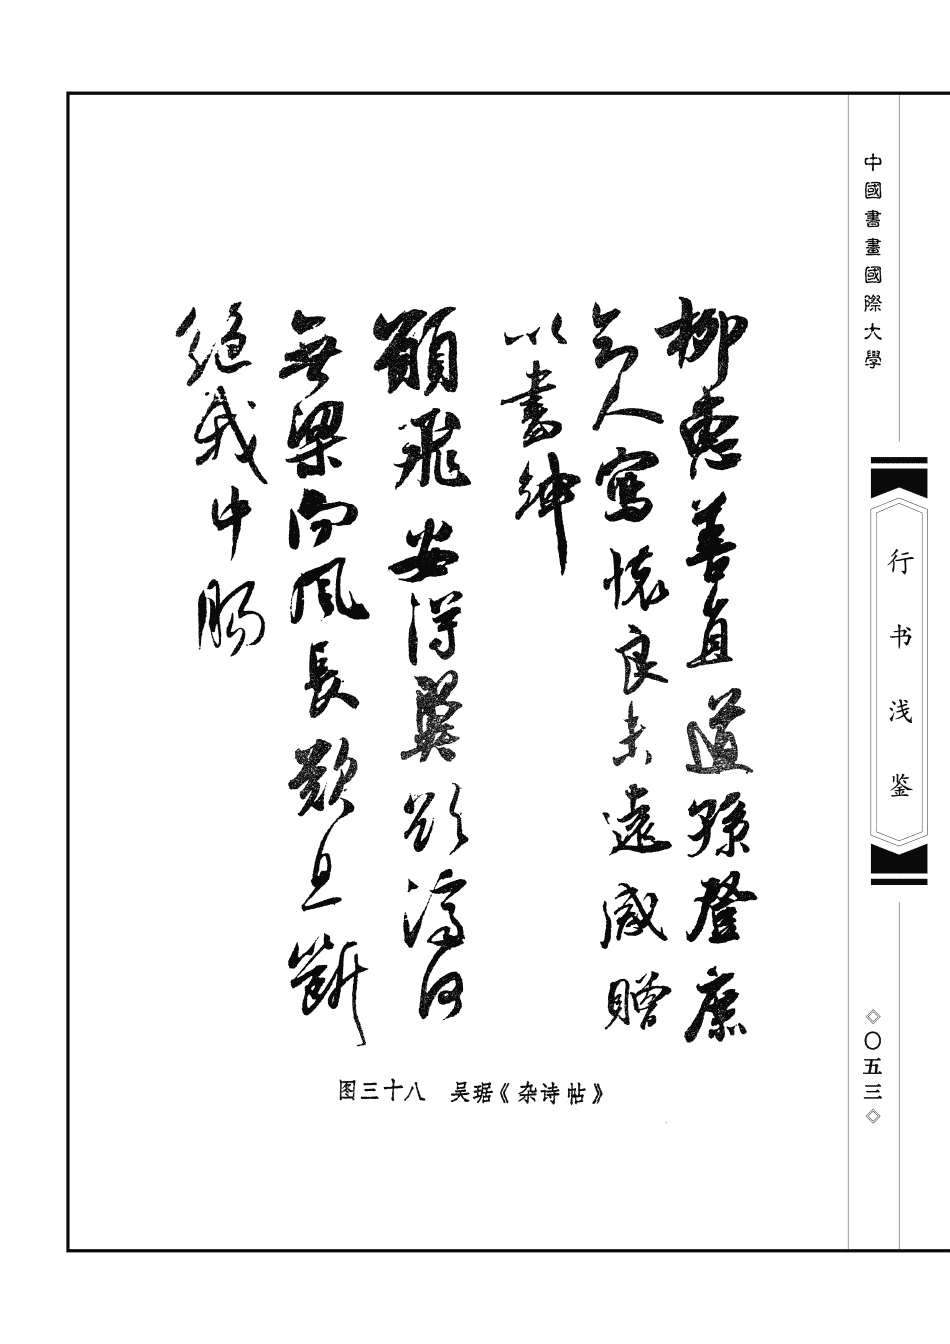 柳惠善直道孫登庶
知人寫懷良未遠感贈
以書紳
願飛安得翼欲濟河
無梁向風長歎息斷
絕我中腸
图三十八 吴琚《杂诗帖》
中國書畫國際大學
行书浅鉴
◇〇五三◇